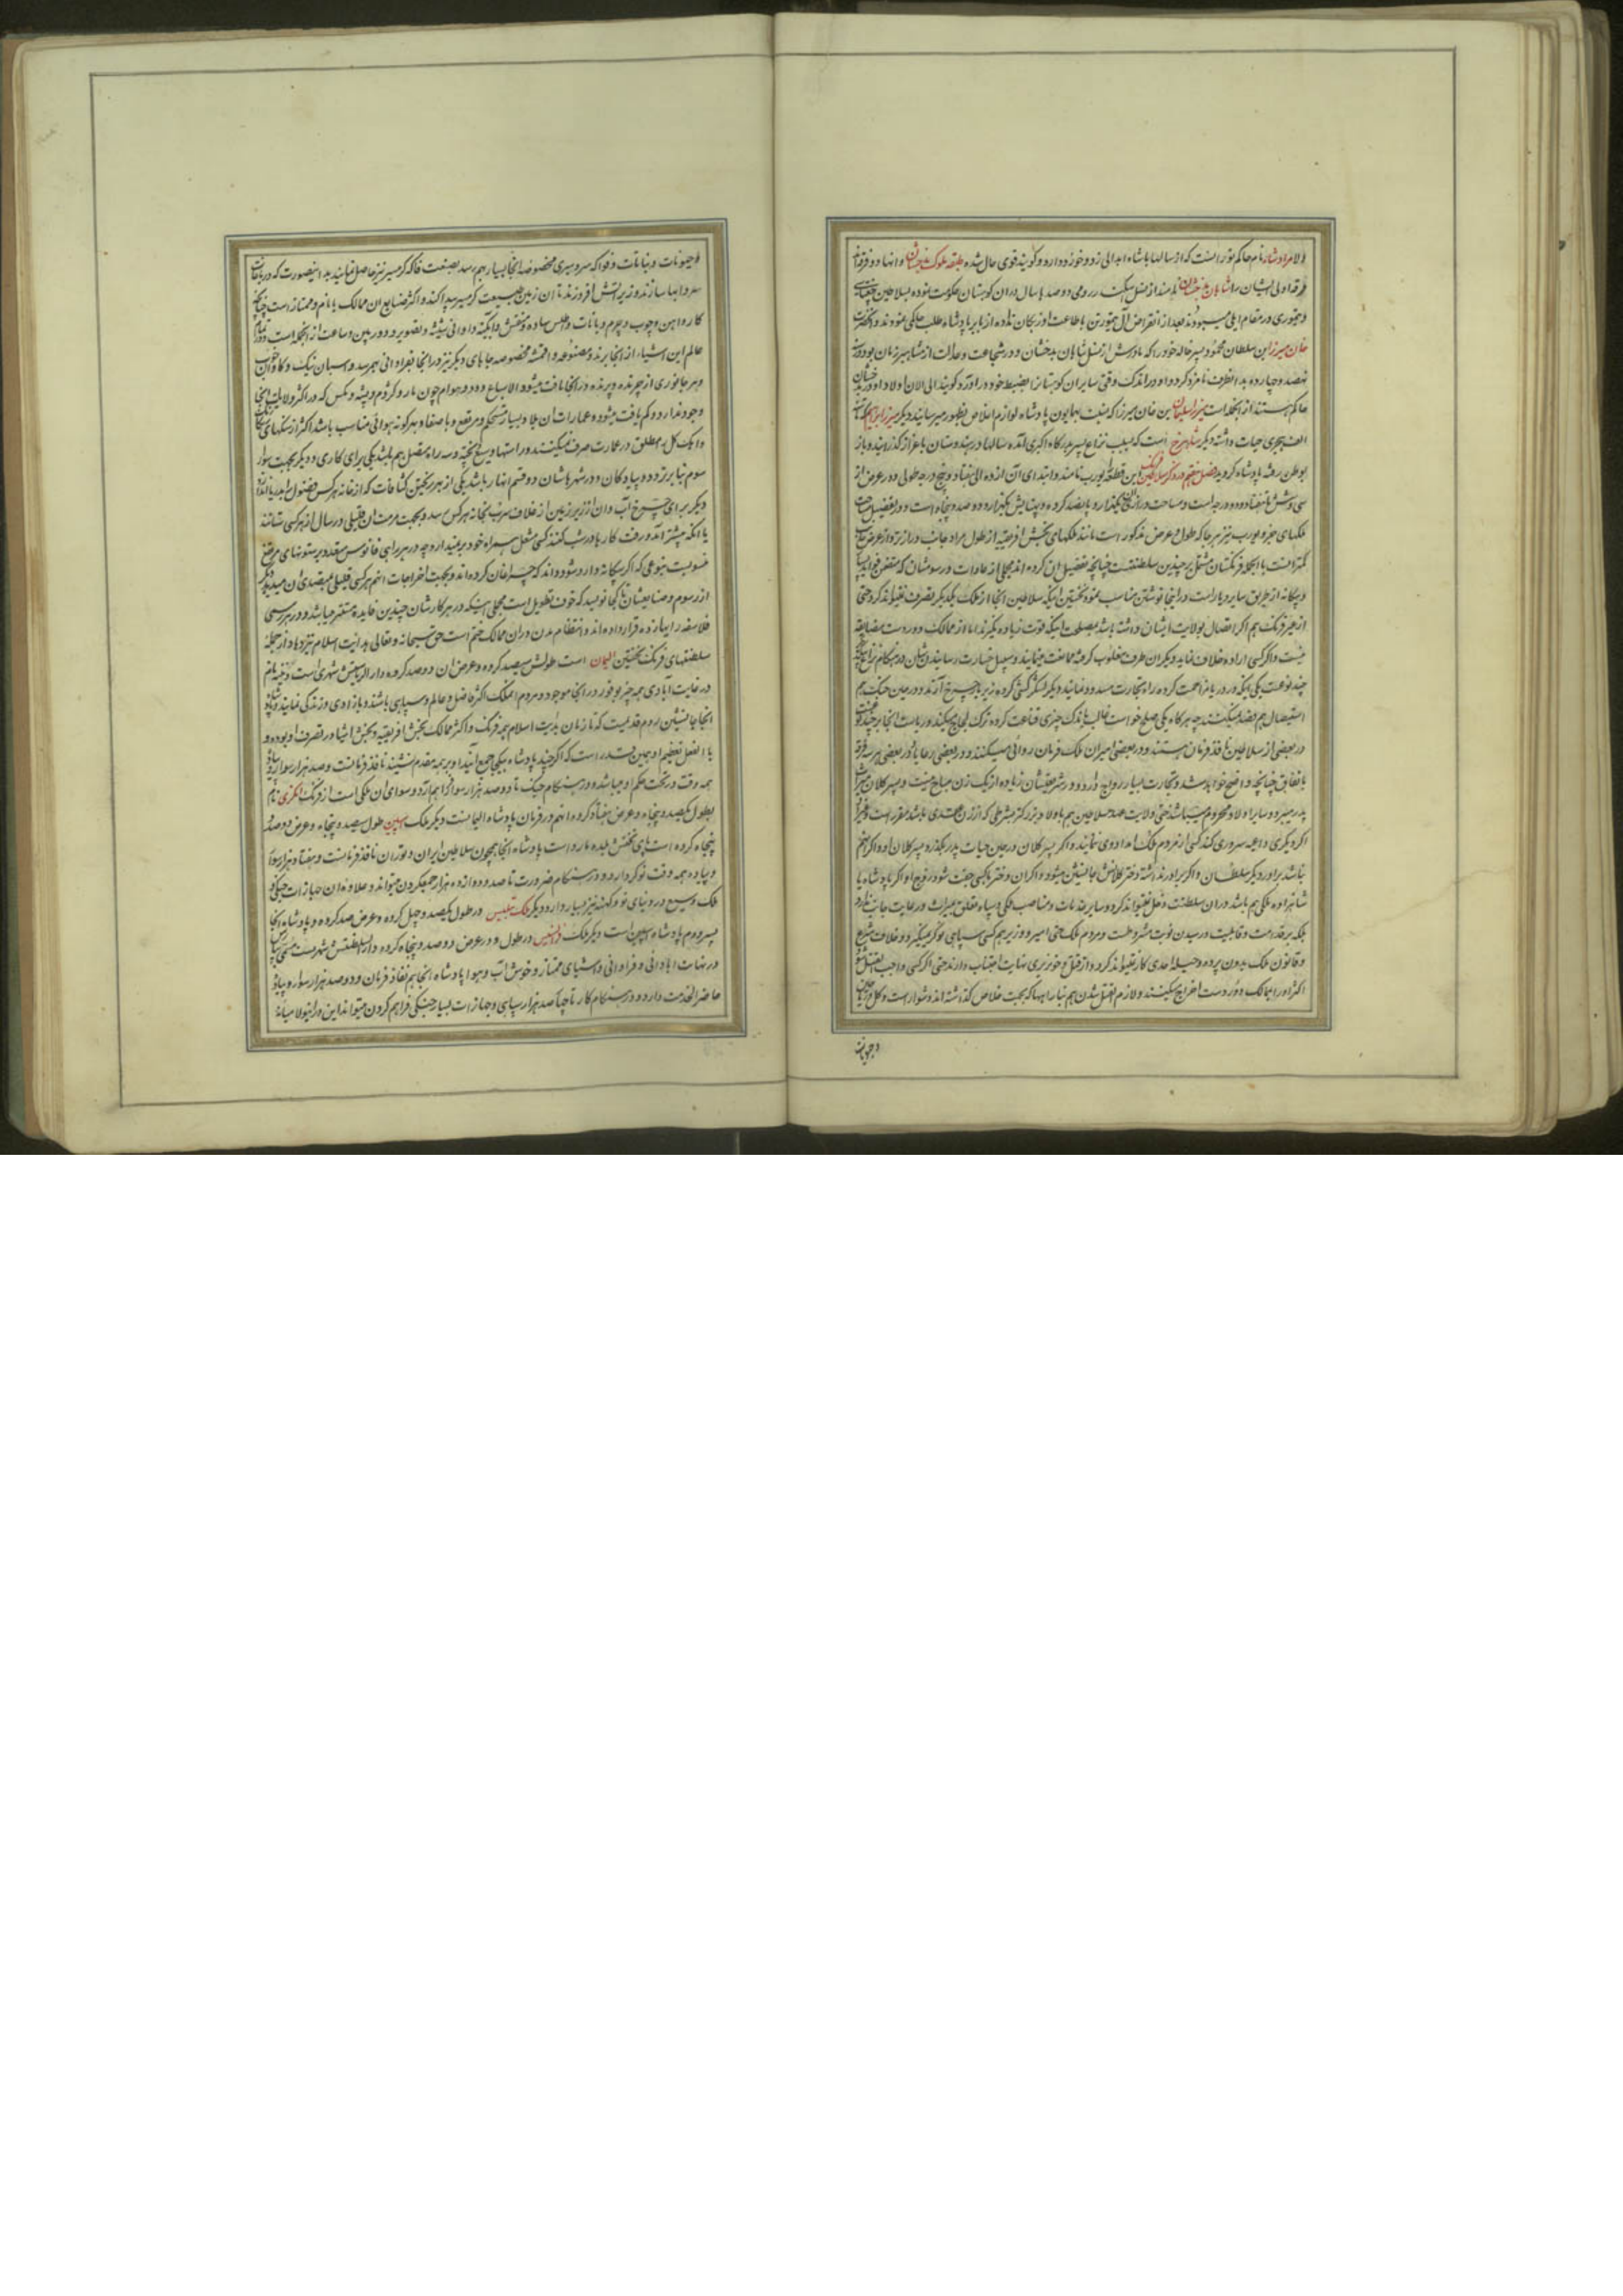 نام حاکم توران است که از سالها با شاه ابدالی زد و خورد دارد و گویند قوی حال شده طبقه ملوک بدخشان و انها دو فرقه‌اند
فرقه اولی ایشان را شاهان بدخشان نامند از نسل سکندر رومی دو صد سال دران کوهستان حکومت نموده بسلاطین چغتائی
خان میرزا بن سلطان محمود میر خاله خود را که مادرش از نسل شاهان بدخشان و در شجاعت و عدالت از مشاهیر زمان بود در
نهصد و چهارده بدانطرف نامزد کرد و او در اندک وقتی سایر ان کوهستان را بضبط خود در آورد و گویند الی الان اولاد او در بدخشان
حاکم هستند از انجمله است میرزا سلیمان بن خان میرزا که نسبت بهمایون پادشاه لوازم اخلاص بظهور میرسانید دیگر میرزا ابراهیم
الف هجری حیات داشته دیگر شاهرخ است که بسبب نزاع پسر بدرگاه اکبری آمده سالها در هندوستان باعزاز گذرانید و باز
بوطن رفته پادشاه گردید فصل هفتم در ذکر سلاطین فرنگ این قطعه را یورپ نامند و ابتدای آن از ده الی هفتاد و پنج درجه طولی و در عرض از
سی و شش تا هفتاد و دو درجه است و مساحت درازی یکهزار و پانصد کروه و پهنایش یکهزار و دو صد و پنجاه است و در تفصیل مساحت
ملکهای جزو یورپ نیز هر جا که طول و عرض مذکور است مانند ملکهای بخش افریقیه از طول مراد جانب درازتر و از عرض جانب
کمتر است بالجمله فرنگستان مشتمل بر چندین سلطنتست چنانچه تفصیل ان کرده اند مجملی از عادات و رسومشان که متضمن فواید بسیار
و بیگانه از طریق سایر دیار است در اینجا نوشتن مناسب نمود نخستین اینکه سلاطین انجا از ملک یکدیگر بتصرف نتوانند کرد حتی
از غیر فرنگ هم اگر اتصال بولایت ایشان داشته باشد مصلحت اینکه قوت زیاده نگیرند اما از ممالک دور دست مضایقه
نیست و اگر کسی اراده خلاف نماید دیگران طرف مغلوب گرفته ممانعت مینمایند و سبیل خسارت رسانیدنشان در هنگام نزاع
چند نوعست یکی اینکه در دریا مزاحمت کرده راه تجارت مسدود نمایند دیگر لشکرکشی کرده زیر بار خرج آرند و در حین جنگ هم
استیصال هم قصد نمیکنند چه هرگاه یکی صلح خواست غالب باندک چیزی قناعت کرده ترک لجاج میکند و ریاست انجا بر چند
در بعضی از سلاطین نافذ فرمان هستند و در بعضی امیران ملک فرمان روائی میکنند و در بعضی رعایا و در بعضی هر سه فرقه
باتفاق چنانچه واضح خواهد شد و تجارت بسیار رواج دارد و در شریعتشان زیاده از یک زن مباح نیست و پسر کلان میراث
پدر میبرد و سایر اولاد محروم میباشند حتی ولایت عهد سلاطین هم باولاد بزرگتر بشرطی که از زن عقدی باشد مقرر است و غیر
اگر دیگری داعیه سروری کند کسی از مردم ملک امداد وی ننمایند و اگر پسر کلان در حین حیات پدر بگذرد پسر کلان او و اگر انهم
نباشد برادر دیگر سلطان و اگر برادر نداشته دختر کلانش جانشین میشود و اگر ان دختر با کسی جفت شود زوج او اگر پادشاه یا
شاهزاده ملکی هم باشد دران سلطنت دخل نتواند کرد و سایر خدمات و مناصب ملکی و سپاه تعلق بمیراث و رعایت جانب ندارد
بلکه بر خدمت و قابلیت و رسیدن نوبت مشروطست و مردم ملک حتی امیر و وزیر هم کسی سپاهی نوکر نمیگیرد و خلاف شرع
و قانون ملک بدون پرده و حیله احدی کار نتواند کرد و از قتل و خونریزی نهایت اجتناب دارند حتی اگر کسی واجب القتل شود
اکثر او را بممالک دور دست اخراج میکنند و لازم القتل شدن هم بنا براهها که بجهت خلاص گذاشته اند دشوار است و کل
و حیوانات
و حیوانات و نباتات و فواکه سردسیری مخصوصه انجا بسیار بهم رسد بصنعت فاکه گرمسیر نیز حاصل نمایند بدینصورت که در باغات
سردابها سازند و زیر انش افروزند تا ان زمین طبیعت گرمسیر پیدا کند و اکثر صنایع ان ممالک با نام و ممتاز است چنانچه
کار آهن و چوب و چرم و بانات و اطلس ساده و منقش و آبگینه و اوانی شیشه و تصویر و دوربین و ساعت از انجمله است و تمام
عالم این اشیاء از انجا برند و مصنوعه و اقمشه مخصوصه جاهای دیگر نیز در انجا بفراوانی بهم رسد و اسبان نیک و گاو خوب
و هر جانوری از چرنده و پرنده در انجا یافت میشود الا سباع و دد و هوام چون مار و کژدم و پشه و مگس که در اکثر ولایت انجا
وجود ندارد و کم یافت میشود و عمارات ان بلاد بسیار مستحکم و مرتفع و باصفا و بهر گونه هوائی مناسب باشد اکثر از سنگهای
و اهک گل مطلق در عمارت صرف نمیکنند و راستها وسیع پخته و سه راه متصل هم باشد یکی برای گاری و دیگر بجهت سوار
سوم بنا بر تردد پیادگان و در شهرهاشان دو قسم انهار باشد یکی از بهر ریختن کثافات که از خانه هر کس فضول
دیگر برای چرخ آب و ان از زیر زمین از غلاف سرب بخانه هر کس رسد و بجهت مرمت ان قلیلی در سال از هر کسی ستانند
یا انکه پیشتر آمد و رفت کار با در شب کنند کسی مشعل همراه خود بر نمیدارد چه در هر راهی فانوس متعدد بر ستونهای مرتفع
منسوبست بنوعی که اگر بیگانه وارد شود داند که چراغان کرده اند و بجهت اخراجات انهم هر کسی قلیلی بمتصدی ان میدهد دیگر
از رسوم و صنایعشان تا کجا نویسد که خوف تطویل است مجملی اینکه در هر کارشان چندین فایده مستتر میباشد و در هر رسمی
فلاسفه را بهاز ده قرار داده اند و انتظام مدن دران ممالک ختم است حق سبحانه و تعالی هدایت اسلام نیز دهاد از جمله
سلطنتهای فرنگ نخستین المان است طولش سیصد کروه و عرض ان دو صد کروه و دار الریاستش شهری است وینه نام
در غایت آبادی همه چیز بوفور در انجا موجود و مردم انملک اکثر فاضل و عالم و سپاهی باشند و بازادی زندگی نمایند و پادشاه
انجا جانشین روم قدیمست که تا زمان بدایت اسلام همه فرنگ و اکثر ممالک بخش افریقیه و بخش اشیا در تصرف او بوده و
یا الفعل تعظیم او همین قدر است که اگر چند پادشاه بیکجا جمع آیند او بر همه مقدم نشیند نافذ فرمانست و صد هزار سوار و پیاده
همه وقت در تحت حکم او میباشد و در هنگام جنگ تا دو صد هزار سوار فراهم آرد و سوای ان ملکی است از فرنگ انگری نام
بطول یکصد و پنجاه و عرض هفتاد کروه انهم در فرمان پادشاه المانست دیگر ملک سپین طول سیصد و پنجاه و عرض دو صد و
پنجاه کروه است پای تختش بلده مادرد است پادشاه انجا همچون سلاطین ایران و توران نافذ فرمانست و هفتاد هزار سوار
و پیاده همه وقت نوکر دارد و در هنگام ضرورت تا صد و دوازده هزار جمع کردن میتواند و علاوه ان جهازات جنگی و
ملک وسیع در دنیای نو و کهنه نیز بسیار دارد دیگر ملک نیپلس در طول یکصد و چهل کروه و عرض صد کروه و پادشاه انجا
پسر دوم پادشاه اسپین است دیگر ملک فرانسیس در طول و در عرض دو صد و پنجاه کروه و دار السلطنتش شهریست مسمی بپاریس
در نهایت ابادانی و فراوانی و اشیای ممتاز و خوش آب و هوا پادشاه انجا هم نفاذ فرمان و دو صد هزار سوار و پیاده
حاضر الخدمت دارد و در هنگام کار تا چهار صد هزار سپاهی و جهازات بسیار جنگی فراهم کردن میتواند این درا نیولا میانه